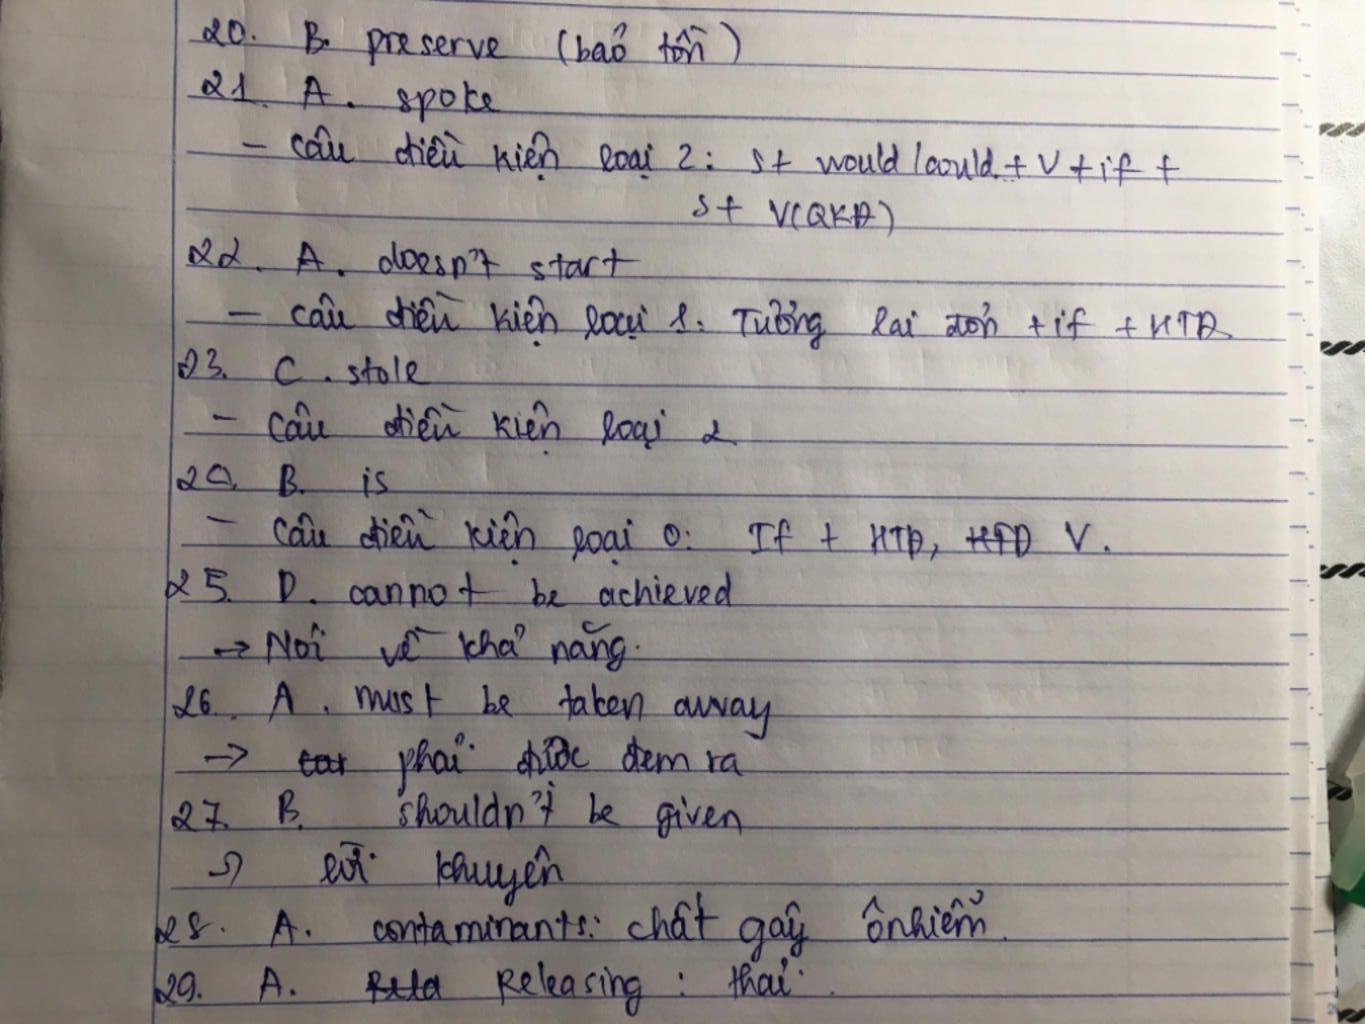 20. B. preserve (bảo tồn)
21. A. spoke
- Câu điều kiện loại 2: S+ would/could + V + if +
S+ V(QKĐ)
22. A. doesn't start
- Câu điều kiện loại 1: Tương lai đơn + if + HTĐ
23. C. stole
- Câu điều kiện loại 2
24. B. is
- Câu điều kiện loại 0: If + HTĐ, HTĐ V.
25. D. cannot be achieved
→ Nói về khả năng.
26. A. must be taken away
→ phải được đem ra
27. B. shouldn't be given
→ lời khuyên
28. A. contaminants: chất gây ô nhiễm.
29. A. Releasing: thải.